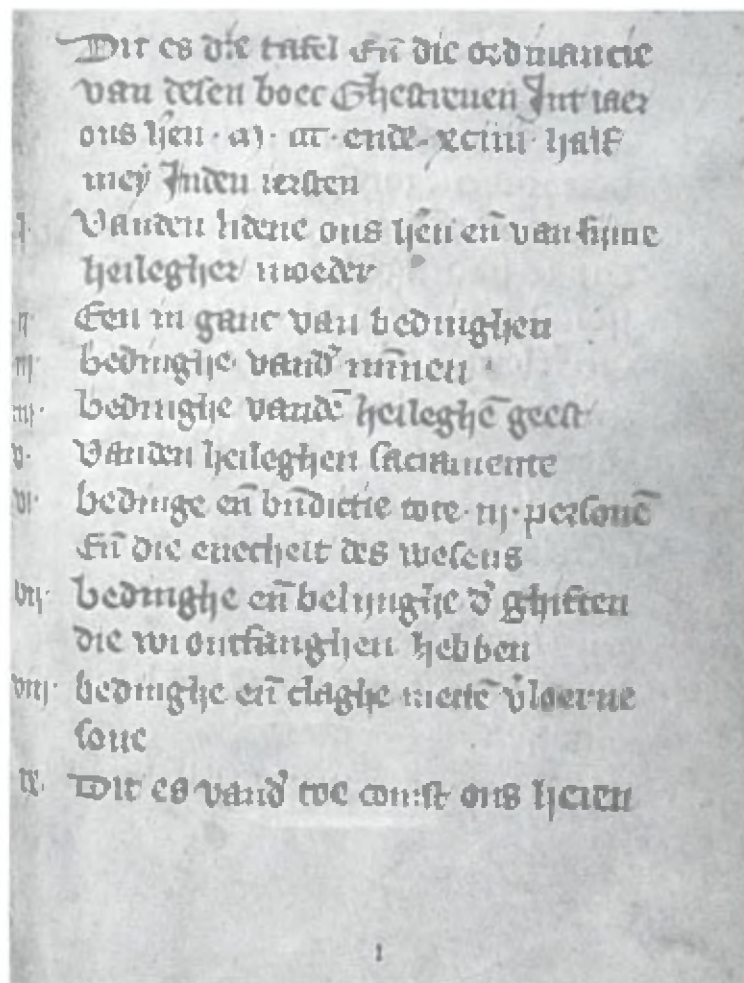 Dit es die tafel Eñ die ordinancie
van desen boec Ghescreuen Int iaer
ons heñ · m · ccc · ende · xciiii · half
mey Inden iersten
j· Vanden lidene ons heñ eñ van sijnre
heilegher moeder
ij· Een in ganc van bedinghen
iij· bedinghe vand' minnen
iiij· bedinghe vandē heileghē geest
v· Vanden heileghen sacramente
vi· bedinge eñ bñdictie tote · iij · personē
Eñ die enecheit des wesens
vij· bedinghe eñ belijnghe d' ghiften
die wi ontfanghen hebben
viij· bedinghe eñ claghe verloerne
sone
ix· Dit es vand' toe comst ons heren
1